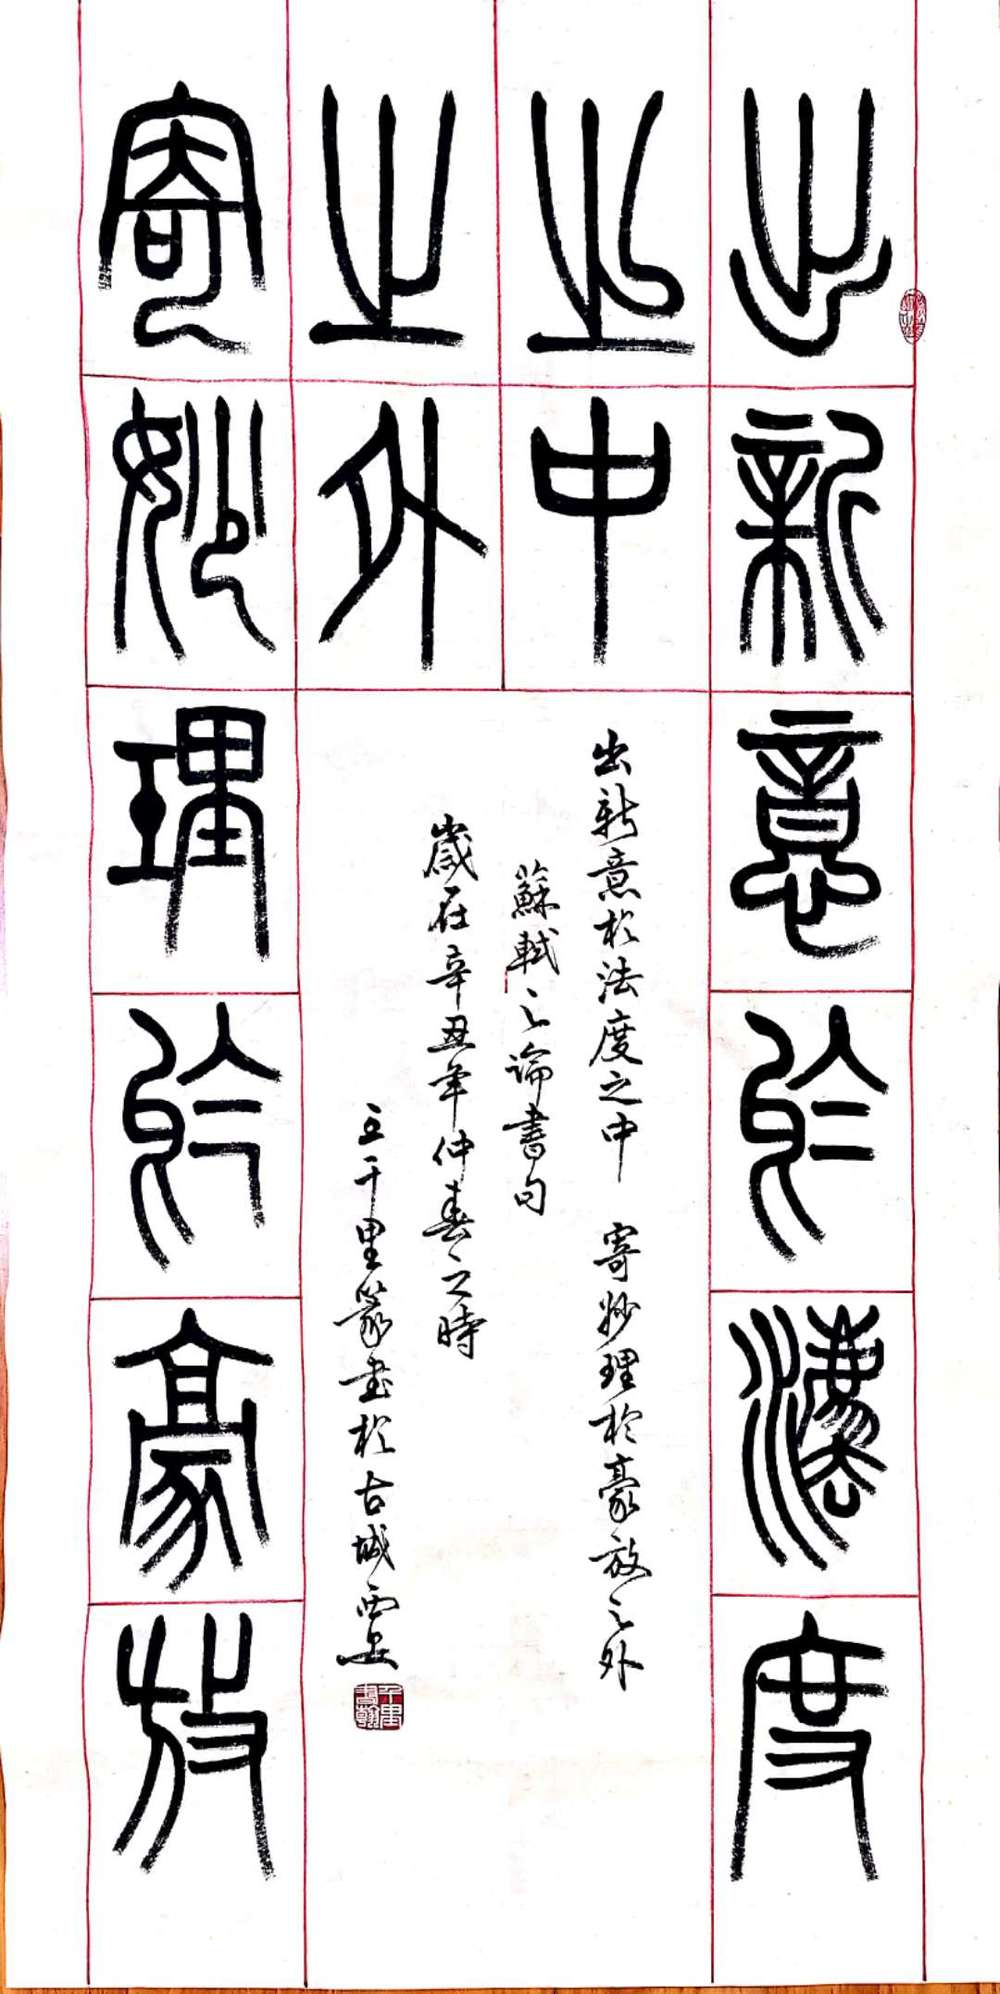 出新意於灋度
之中
寄妙理於豪放
之外
出新意於法度之中 寄妙理於豪放之外
蘇軾之論書句
歲在辛丑年仲春之時
千里篆書於古城
千里書翰